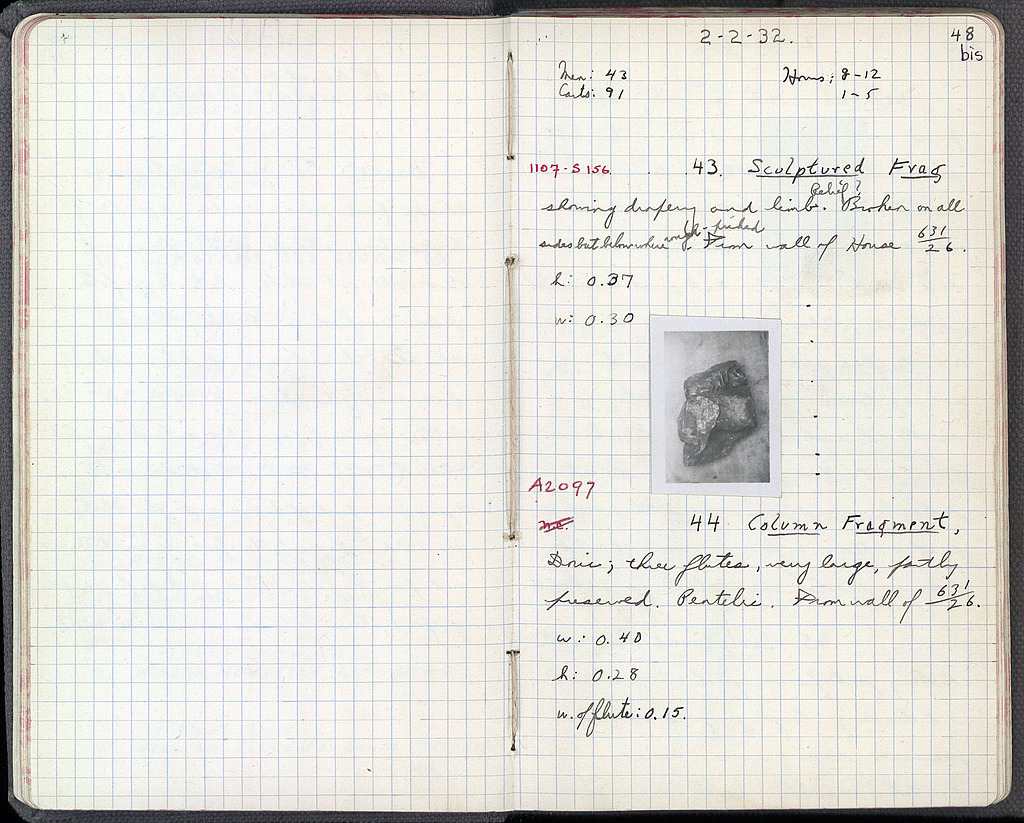 2-2-32.
48
bis
Men: 43
Hours: 8-12
Carts: 91
1-5
1107-S 156.
43. Sculptured Frag
Relief?
showing drapery and limb. Broken on all
rough-picked
sides but below where . From wall of House 631/26.
h: 0.37
w: 0.30
A2097
44 Column Fragment,
Doric; three flutes, very large, partly
preserved. Pentelic. From wall of 631/26.
w: 0.40
h: 0.28
w. of flute: 0.15.